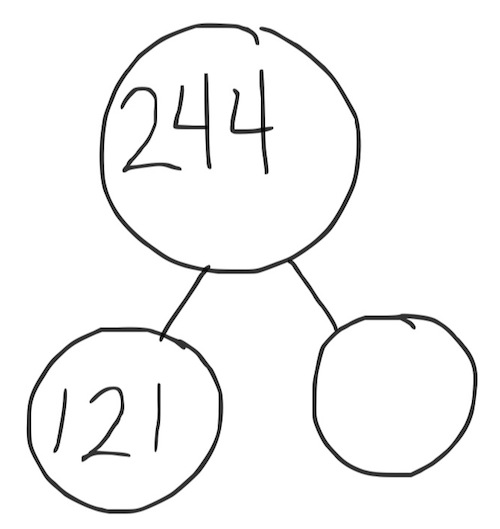 244
121